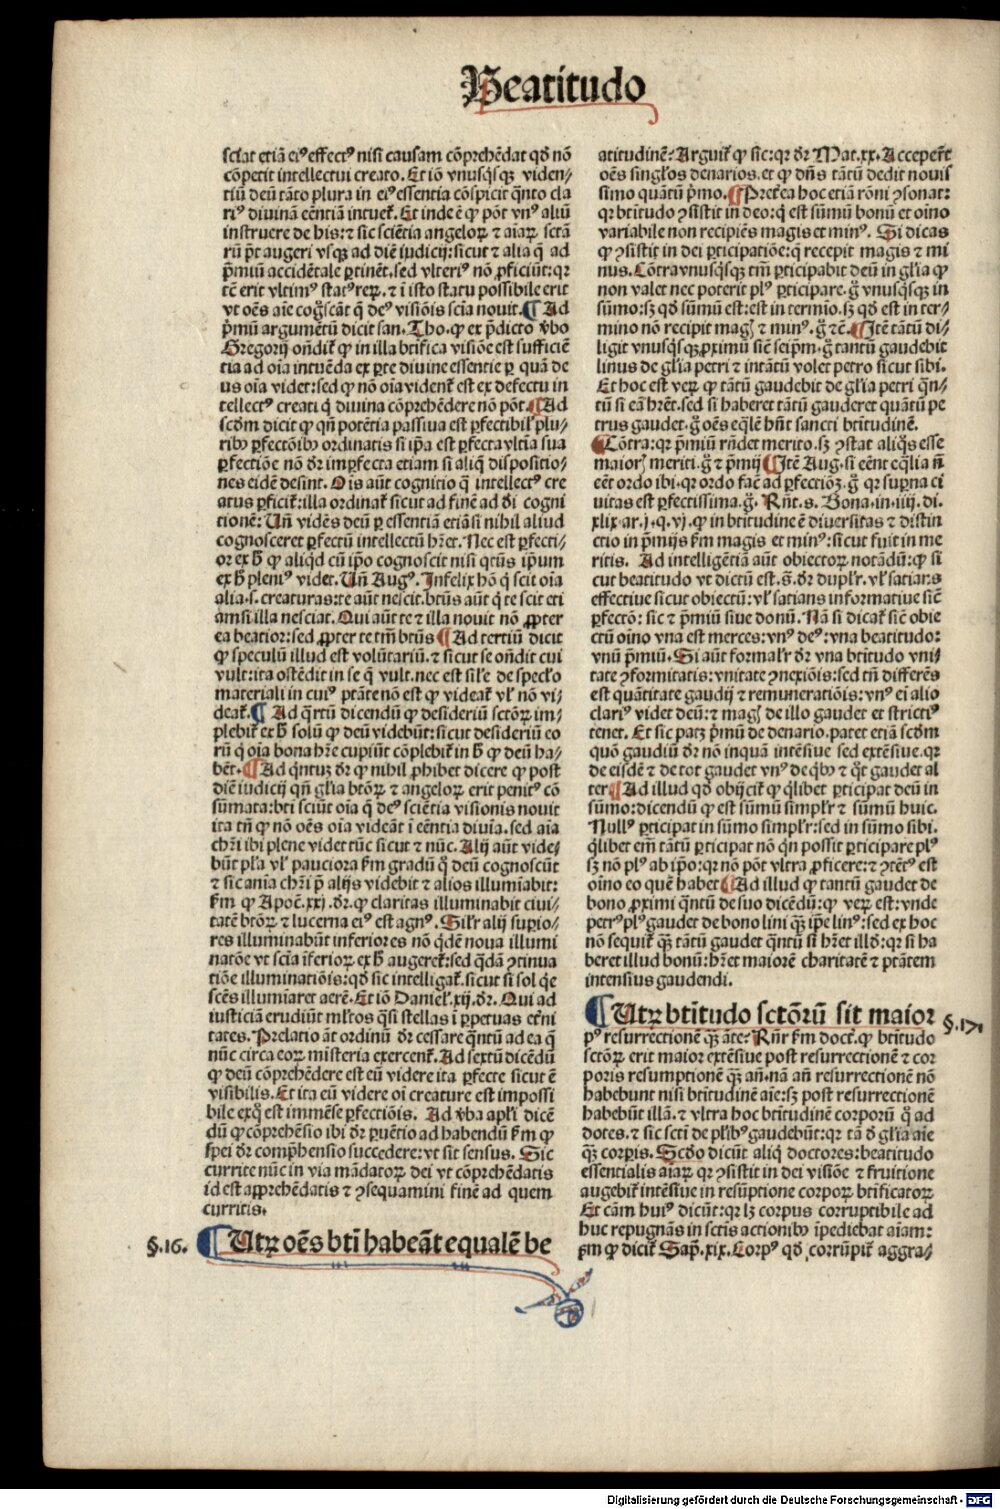 Beatitudo
sciat etiā ei⁹ effect⁹ nisi causam cōprehēdat qd̄ nō
cōpetit intellectui creato. Et iō vnusq̄sq̄ꝫ viden-
tiū deū tāto plura in ei⁹ essentia cōspicit q̄nto cla
ri⁹ diuinā eēntiā intuet̄. Et inde ē ꝙ pōt vn⁹ aliū
instruere de his: ⁊ sic sciētia angeloꝝ ⁊ aīaꝝ sctā
rū pt̄ augeri vsqꝫ ad diē iudicij: sicut ⁊ alia q̄ ad
p̄miū accidētale ꝑtinēt. sed vlteri⁹ nō ꝓficiūt: qꝛ
tc̄ erit vltim⁹ stat⁹ reꝝ. ⁊ ī isto statu possibile erit
vt oēs aīe coḡscāt q̄ de⁹ visiōis scīa nouit. ¶ Ad
p̄mū argumētū dicit san. Tho. ꝙ ex p̄dicto v̄bo
Gregorij on̄dit̄ ꝙ in illa bt̄ifica visiōe est sufficiē
tia ad oīa intuēda ex ꝑte diuine essentie ꝑ quā de
us oīa videt: sed ꝙ nō oīa vident̄ est ex defectu in
tellect⁹ creati q̄ diuina cōprehēdere nō pōt. ¶ Ad
scd̄m dicit ꝙ qn̄ potētia passiua est ꝑfectibil̄ plu-
ribꝰ ꝑfectōibꝰ ordinatis si ip̄a est ꝑfecta vltīa sua
ꝑfectiōe nō dr̄ imꝑfecta etiam si aliq̄ dispositio-
nes eidē desint. Oīs aūt cognitio q̄ intellect⁹ cre
atus ꝑficit̄: illa ordinat̄ sicut ad finē ad d̄i cogni
tionē: Uñ vidēs deū ꝑ essentiā etiā si nihil aliud
cognosceret ꝑfectū intellectū hr̄et. Nec est ꝑfecti-
or ex h̄ ꝙ aliqd̄ cū ip̄o cognoscit nisi q̄tūs ip̄um
ex h̄ pleni⁹ videt. Uñ Aug⁹. Infelix hō q̄ scit oīa
alia. s. creaturas: te aūt nescit. bt̄us aūt q̄ te scit eti
amsi illa nesciat. Qui aūt te ⁊ illa nouit nō ꝓpter
ea beatior: sed ꝓpter te tm̄ bt̄us ¶ Ad tertiū dicit
ꝙ speculū illud est volūtariū. ⁊ sicut se on̄dit cui
vult: ita ostēdit in se q̄ vult. nec est sil̄e de spec̄lo
materiali in cui⁹ ptāte nō est ꝙ videat̄ vl̄ nō vi-
deat̄. ¶ Ad q̄rtū dicendū ꝙ desideriū sctōꝝ im-
plebit̄ ex h̄ solū ꝙ deū videbūt: sicut desideriū eo
rū q̄ oīa bona hr̄e cupiūt cōplebit̄ in h̄ ꝙ deū ha-
bēt. ¶ Ad q̄ntuꝫ dr̄ ꝙ nihil ꝓhibet dicere ꝙ post
diē iudicij qn̄ gl̄ia bt̄oꝝ ⁊ angeloꝝ erit penit⁹ cō
sūmata: bt̄i sciūt oīa q̄ de⁹ sciētia visionis nouit
ita tn̄ ꝙ nō oēs oīa videāt ī eēntia diuīa. sed aīa
chr̄i ibi plene videt tūc sicut ⁊ nūc. Alij aūt vide-
būt pl̄a vl̄ pauciora ẜm gradū q̄ deū cognoscūt
⁊ sic anīa chr̄i p̄ alijs videbit ⁊ alios illumīabit:
ẜm ꝙ Apoc̄. xxj. dr̄. ꝙ claritas illuminabit ciui-
tatē bt̄oꝝ ⁊ lucerna ei⁹ est agn⁹. Sil̄r alij suꝑio-
res illuminabūt inferiores nō q̄dē noua illumi
natōe vt scīa īferioꝝ ex h̄ augeret̄: sed q̄dā ꝯtinua
tiōe illuminatiōis: qd̄ sic intelligat̄. sicut si sol q̄e
scēs illumīaret aerē. Et iō Daniel̄. xij. dr̄. Qui ad
iusticiā erudiūt ml̄tos q̄si stellas ī ꝑpetuas etn̄i
tates. Prelatio āt ordinū dr̄ cessare q̄ntū ad ea q̄
nūc circa eoꝝ misteria exercent̄. Ad sextū dicēdū
ꝙ deū cōprehēdere est eū videre ita ꝑfecte sicut ē
visibilis. Et ita eū videre oī creature est impossi
bile exq̄ est immēse ꝑfectiōis. Ad v̄ba apl̄i dicē
dū ꝙ cōprehēsio ibi dr̄ ꝑuētio ad habendū ẜm ꝙ
spei dr̄ compħensio succedere: vt sit sensus. Sic
currite nūc in via mādatoꝝ dei vt cōprehēdatis
id est apprehēdatis ⁊ ꝯsequamini finē ad quem
curritis.
§. 16. ¶ Utꝝ oēs bt̄i habeāt equalē be
atitudinē: Arguit̄ ꝙ sic: qꝛ dr̄ Mat. xx. Acceper̄t
oēs singl̄os denarios. et ꝙ dn̄s tātū dedit nouis
simo quātū p̄mo. ¶ Pret̄ea hoc etiā rōni ꝯsonat:
qꝛ bt̄itudo ꝯsistit in deo: q̄ est sūmū bonū et oīno
variabile non recipiēs magis et min⁹. Si dicas
ꝙ ꝯsistit in dei ꝑticipatiōe: q̄ recepit magis ⁊ mi
nus. Cōtra vnusq̄sqꝫ tm̄ ꝑticipabit deū in gl̄ia ꝙ
non valet nec poterit pl⁹ ꝑticipare. ḡ vnusq̄sqꝫ in
sūmo: sꝫ qd̄ sūmū est: est in termīo. sꝫ qd̄ est in ter-
mino nō recipit magꝭ ⁊ min⁹. ḡ ⁊c̄. ¶ Itē tātū di-
ligit vnusq̄sqꝫ ꝓximū siē seip̄m. ḡ tantū gaudebit
linus de gl̄ia petri ⁊ intātū volet petro sicut sibi.
Et hoc est veꝝ ꝙ tātū gaudebit de gl̄ia petri q̄n-
tū si eā hr̄et. sed si haberet tātū gauderet quātū pe
trus gaudet. ḡ oēs eq̄lē hn̄t sancti bt̄itudinē.
¶ Cōtra: qꝛ p̄miū rn̄det merito. sꝫ ꝯstat aliq̄s esse
maiorꝭ meriti. ḡ ⁊ p̄mij ¶ Itē Aug. si eēnt eq̄lia n̄
eēt ordo ibi. qꝛ ordo fac̄ ad ꝑfectiōꝫ. ḡ qꝛ suꝑna ci
uitas est ꝑfectissima. ḡ. Rn̄t. s. Bona. in. iiij. di.
xlix. ar. j. q. vj. ꝙ in bt̄itudine ē diuersitas ⁊ distin
ctio in p̄mijs ẜm magis et min⁹: sicut fuit in me
ritis. Ad intelligētiā aūt obiectoꝝ notādū: ꝙ si
cut beatitudo vt dictū est. s̄. dr̄ dupl̄r. vl̄ satians
effectiue sicut obiectū: vl̄ satians informatiue siē
ꝑfectō: sic ⁊ p̄miū siue donū. Nā si dicat̄ siē obie
ctū oīno vna est merces: vn⁹ de⁹: vna beatitudo:
vnū p̄miū. Si aūt formal̄r dr̄ vna bt̄itudo vni-
tate ꝯformitatis: vnitate ꝯnexiōis: sed tn̄ differēs
est quātitate gaudij ⁊ remuneratiōis: vn⁹ ei alio
clari⁹ videt deū: ⁊ magꝭ de illo gaudet et stricti⁹
tenet. Et sic patꝫ p̄mū de denario. patet etiā scd̄m
quō gaudiū dr̄ nō inquā intēsiue sed extēsiue. qꝛ
de eisdē ⁊ de tot gaudet vn⁹ de q̄bꝰ ⁊ q̄t gaudet al
ter ¶ Ad illud qd̄ obijcit̄ ꝙ q̄libet ꝑticipat deū in
sūmo: dicendū ꝙ est sūmū simpl̄r ⁊ sūmū huic.
Null⁹ ꝑticipat in sūmo simpl̄r: sed in sūmo sibi.
q̄libet em̄ tātū ꝑticipat nō q̄n possit ꝑticipare pl⁹
sꝫ nō pl⁹ ab ip̄o: qꝛ nō pōt vltra ꝓficere: ⁊ ꝯtēt⁹ est
oīno eo quē habet ¶ Ad illud ꝙ tantū gaudet de
bono ꝓximi q̄ntū de suo dicēdū: ꝙ veꝝ est: vnde
petr⁹ pl⁹ gaudet de bono lini qꝫ̄ ip̄e lin⁹: sed ex hoc
nō sequit̄ qꝫ̄ tātū gaudet q̄ntū si hr̄et ill̄d: qꝛ si ha
beret illud bonū: hr̄et maiorē charitatē ⁊ ptātem
intensius gaudendi.
¶ Utꝝ bt̄itudo sctōrū sit maior §. 17.
p⁹ resurrectionē qꝫ̄ āte: Rn̄r ẜm doct̄. ꝙ bt̄itudo
sctōꝝ erit maior extēsiue post resurrectionē ⁊ cor
poris resumptionē qꝫ̄ an̄. nā an̄ resurrectionē nō
habebunt nisi bt̄itudinē aīe: sꝫ post resurrectionē
habebūt illā. ⁊ vltra hoc bt̄itudinē corporū q̄ ad
dotes. ⁊ sic scti de pl̄ib⁹ gaudebūt: qꝛ tā d̄ gl̄ia aīe
qꝫ̄ corꝑis. Scd̄o dicūt aliq̄ doctores: beatitudo
essentialis aīaꝝ qꝛ ꝯsistit in dei visiōe ⁊ fruitione
augebit̄ intēsiue in resūptione corpoꝝ bt̄ificatoꝝ
Et cām hui⁹ dicūt: qꝛ lꝫ corpus corruptibile ad
huc repugnās in sctīs actionibꝰ īpediebat aīam:
ẜm ꝙ dicit̄ Sap̄. xix. Corp⁹ qd̄ corrūpit̄ aggra-
Digitalisierung gefördert durch die Deutsche Forschungsgemeinschaft - DFG